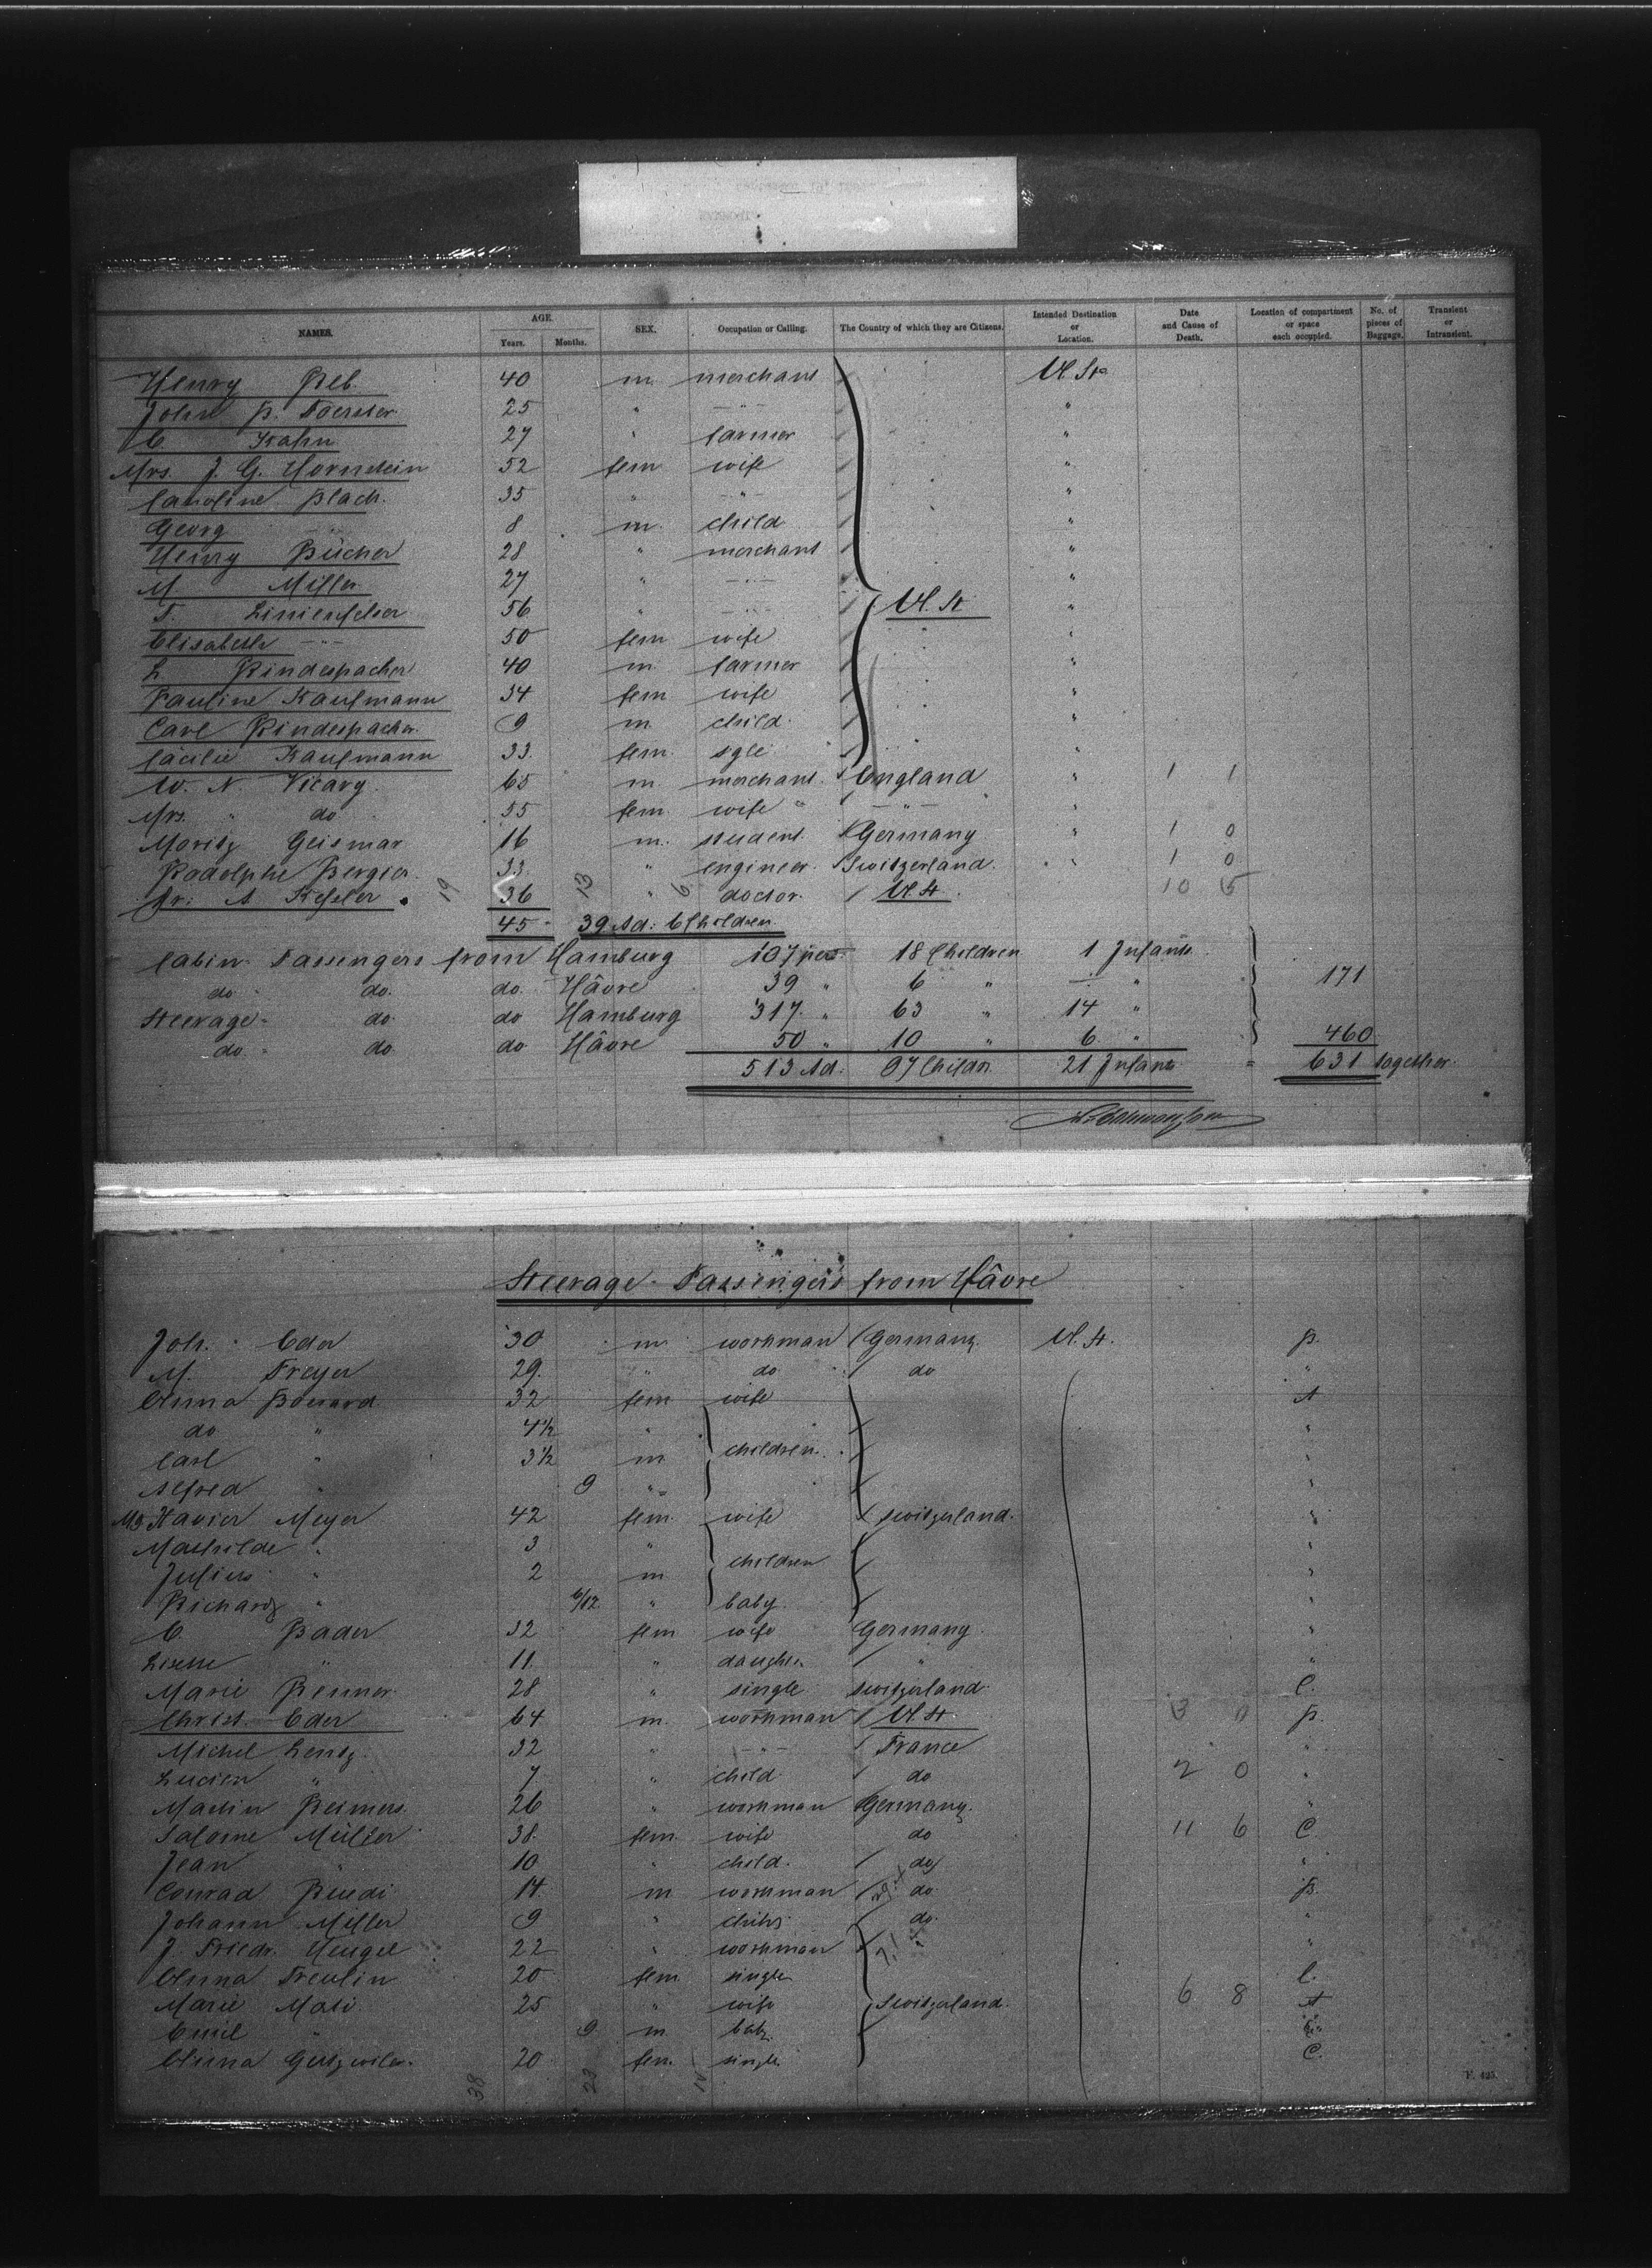 NAMES. AGE. Years. Months. SEX. Occupation or Calling. The Country of which they are Citizens. Intended Destination or Location. Date and Cause of Death. Location of compartment or space each occupied. No. of pieces of Baggage. Transient or Intransient.
Henry Reb. 40 m. merchant U. St.
John P. Foerster 25 " -"- "
C. Kahn 27 " farmer "
Mrs. J. G. Hornstein 52 fem wife "
Caroline Blach. 35 " -"- "
Georg -"- 8 m. child "
Henry Bücher 28 " merchant "
M. Miller 27 " -"- "
F. Linienfelser 56 " -"- U. St "
Elisabeth -"- 50 fem wife "
L. Rindespacher 40 m. farmer "
Pauline Kaufmann 34 fem wife "
Carl Rindespacher 9 m. child "
Cäcilie Kaufmann 33. fem. sgle "
W. N. Vicary. 65 m. merchant. England " 1 1
Mrs. " do 55 fem. wife " -"- "
Moritz Geismar 16 m. student. Germany " 1 0
Rodolphe Bergier. 33. " engineer. Switzerland. " 1 0
Dr. A Kessler. 19 36 13 " 6 doctor. U. St. 10 5
45 - 39 Ad: 6 Children
Cabin Passengers from Hamburg 107 18 Children 1 Infants
do do. do. Hâvre 39 " 6 " — " 171
Steerage do. do Hamburg 317. " 63 " 14 "
do. do. do Hâvre 50 " 10 " 6 " 460
513 Ad. 97 Childn 21 Infants = 631 together.
Steerage-Passengers from Hâvre
Joh. Eder 30 m workman Germany. U. St. B.
M. Freyer 29. " do do "
Anna Bonard 32 fem wife A
do " 4½ " "
Carl " 3½ m children. "
Alfred " 9 " "
Mrs Xavier Meyer 42 fem. wife Switzerland. "
Mathilde " 3 " "
Julius " 2 m children "
Richard " 6/12. " baby. "
C. Bader 32 fem wife Germany. "
Lisette " 11. " daughter " "
Marie Renner. 28 " single Switzerland. C.
Christ. Eder 64 m. workman U. St. 3 0 B.
Michel Lentz. 32 " -"- France "
Lucien " 7 " child do 2 0 "
Martin Reimers. 26 " workman Germany. "
Salome Müller 38. fem. wife do 11 6 C
Jean " 10 " child. do "
Conrad Ruedi 14. m workman do B.
Johann Miller 9 " child do. "
J. Friedr. Hengel 22 " workman "
Anna Freulin 20 fem. single C.
Marie Mati 25 " wife Switzerland. 6 8 A
Emil " 9 m. baby. "
Anna Gutzwiler. 20 fem. single. C.
38 23
F. 425.